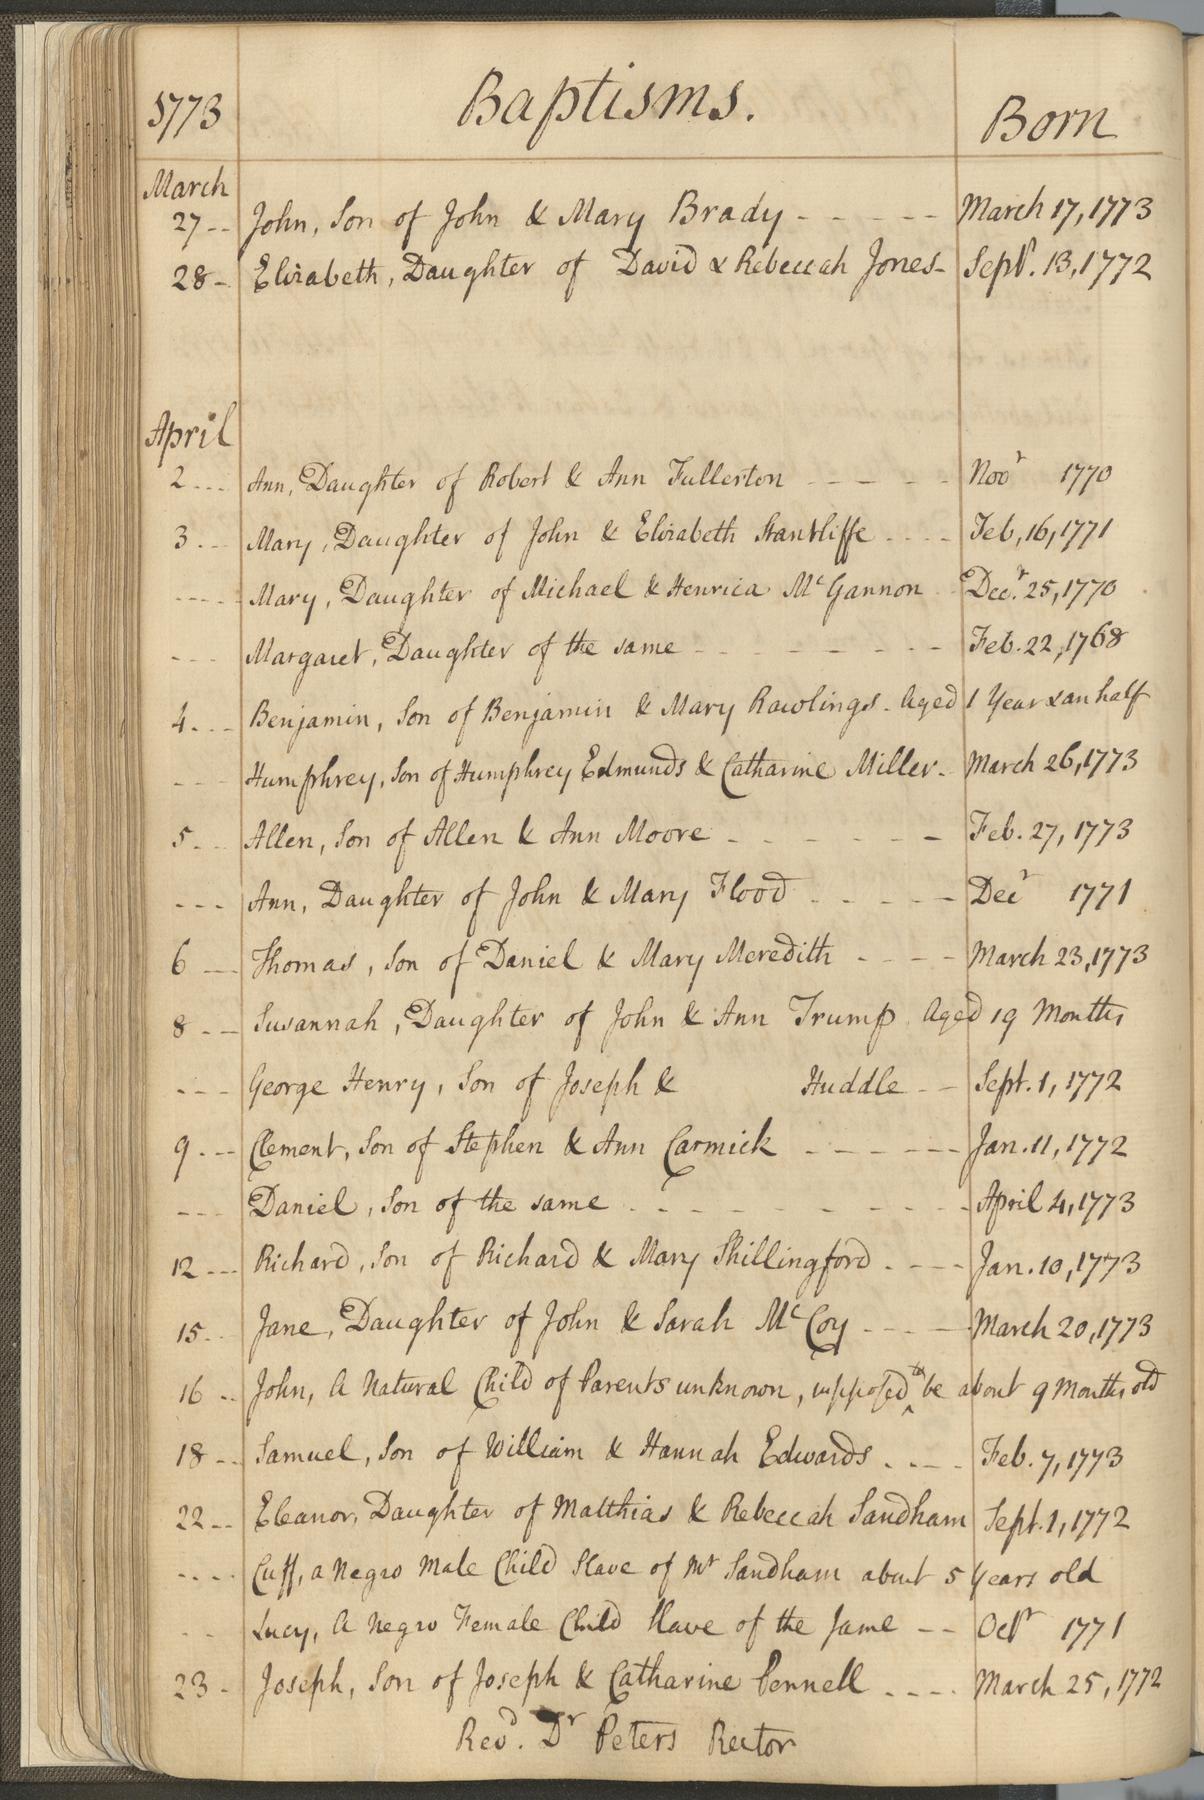 1773 Baptisms. Born
March
27 -- John, Son of John & Mary Brady - - - - - March 17, 1773
28 - Elizabeth, Daughter of David & Rebeccah Jones - Sepr. 13, 1772
April
2 --- Ann, Daughter of Robert & Ann Fullerton - - - - - Novr 1770
3 --- Mary, Daughter of John & Elizabeth Stancliffe - - - - Feb, 16, 1771
---- Mary, Daughter of Michael & Henrica McGannon Decr. 25, 1770
--- Margaret, Daughter of the same - - - - - - - Feb. 22, 1768
4 --- Benjamin, Son of Benjamin & Mary Rawlings - Aged 1 Year & an half
--- Humphrey, Son of Humphrey Edmunds & Catharine Miller - March 26, 1773
5 -- Allen, Son of Allen & Ann Moore - - - - - - Feb. 27, 1773
--- Ann, Daughter of John & Mary Flood - - - - - Decr 1771
6 --- Thomas, Son of Daniel & Mary Meredith - - - - March 23, 1773
8 -- Susannah, Daughter of John & Ann Trump Aged 19 Months
--- George Henry, Son of Joseph & Huddle -- Sept. 1, 1772
9 --- Clement, Son of Stephen & Ann Carmick - - - - - - Jan. 11, 1772
--- Daniel, Son of the same - - - - - - - - - April 4, 1773
12 --- Richard, Son of Richard & Mary Shillingford - - - - Jan. 10, 1773
15 -- Jane, Daughter of John & Sarah McCoy - - - - March 20, 1773
16 -- John, A Natural Child of Parents unknown, supposed to be about 9 Months old
18 -- Samuel, Son of William & Hannah Edwards - - - - Feb. 7, 1773
22 -- Eleanor, Daughter of Matthias & Rebeccah Sandham Sept. 1, 1772
---- Cuff, a Negro Male Child Slave of Mr Sandham about 5 Years old
-- Lucy, A Negro Female Child Slave of the Same -- Octr 1771
23 - Joseph, Son of Joseph & Catharine Pennell - - - - March 25, 1772
Revd. Dr Peters Rector